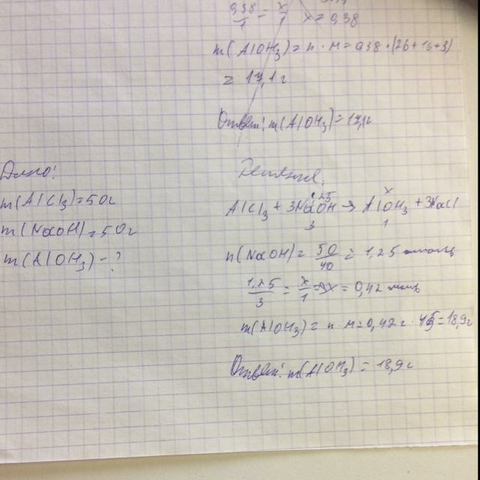 0,38/1 = x/1 x = 0,38
m(AlOH3) = n · M = 0,38 · (26+16+3)
= 17,1г
Ответ: m(AlOH3) = 17,1г
Дано:
m(AlCl3) = 50г
m(NaOH) = 50г
m(AlOH3) - ?
Решение:
1,25 x
AlCl3 + 3NaOH → AlOH3 + 3NaCl
3 1
n(NaOH) = 50/40 = 1,25 моль
1,25/3 = x/1 ⇒ x = 0,42 моль
m(AlOH3) = n · M = 0,42 · 45 = 18,9г
Ответ: m(AlOH3) = 18,9г